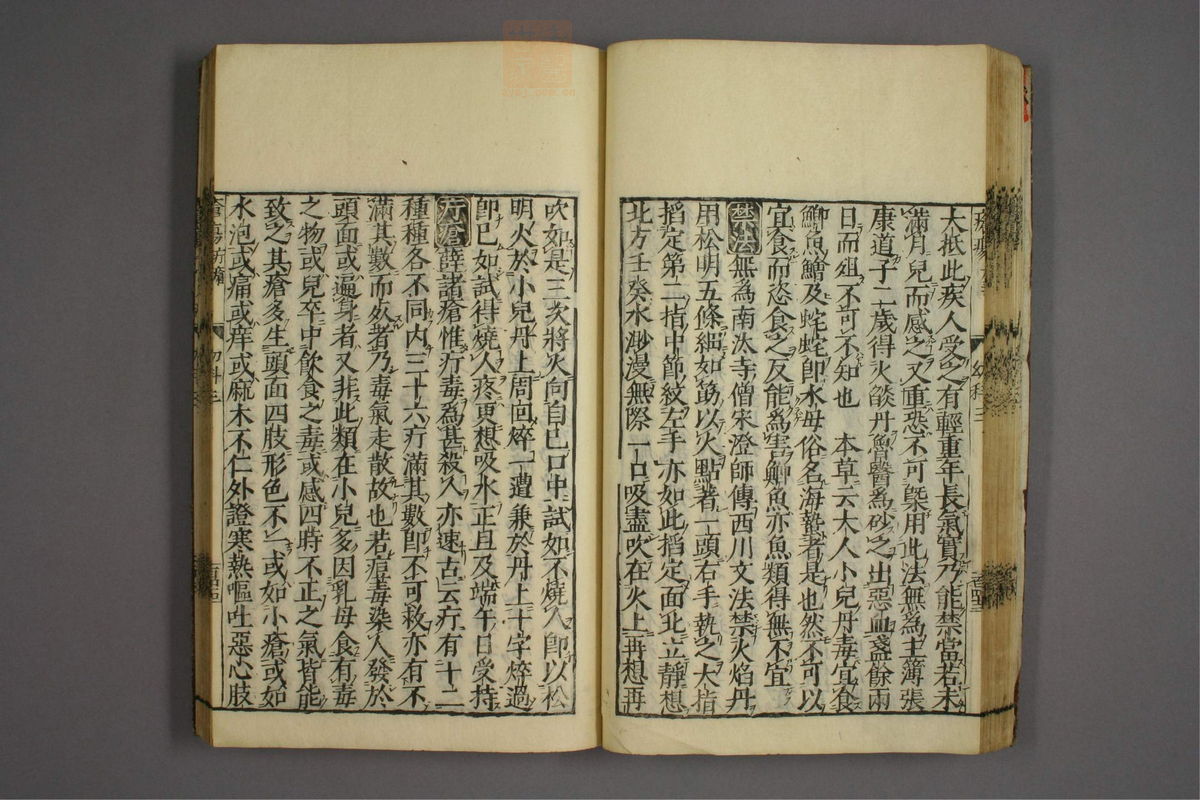 大抵此疾人受之有輕重年長氣實乃能禁當若未
滿月兒而感之又重恐不可槩用此法無爲主簿張
康道子二歲得火燄丹魯醫爲砂之出惡血盞餘兩
日而殂不可不知也 本草云大人小兒丹毒宜食
鯽魚鱠及蛇蛇卽水母俗名海蟄者是也然不可以
宜食而恣食之反能爲害鯽魚亦魚類得無不宜
禁法無爲南汰寺僧宋澄師傳西川文法禁火焰丹
用松明五條細如筯以火點著一頭右手執之大指
搯定第二指中節紋左手亦如此搯定面北立靜想
北方壬癸水渺漫無際一口吸盡吹在火上再想再
吹如是三次將火向自己口中試如不燒人卽以松
明火於小兒丹上周回焠一遭兼於丹上十字焠過
卽已如試得燒人疼更想吸水正旦及端午日受持
疔瘡薛諸瘡惟疔毒爲甚殺人亦速古云疔有十二
種種各不同内三十六疔滿其數卽不可救亦有不
滿其數而死者乃毒氣走散故也若疽毒染人發於
頭面或遍身者又非此類在小兒多因乳母食有毒
之物或兒卒中飲食之毒或感四時不正之氣皆能
致之其瘡多生頭面四肢形色不一或如小瘡或如
水泡或痛或痒或麻木不仁外證寒熱嘔吐惡心肢
幼科三